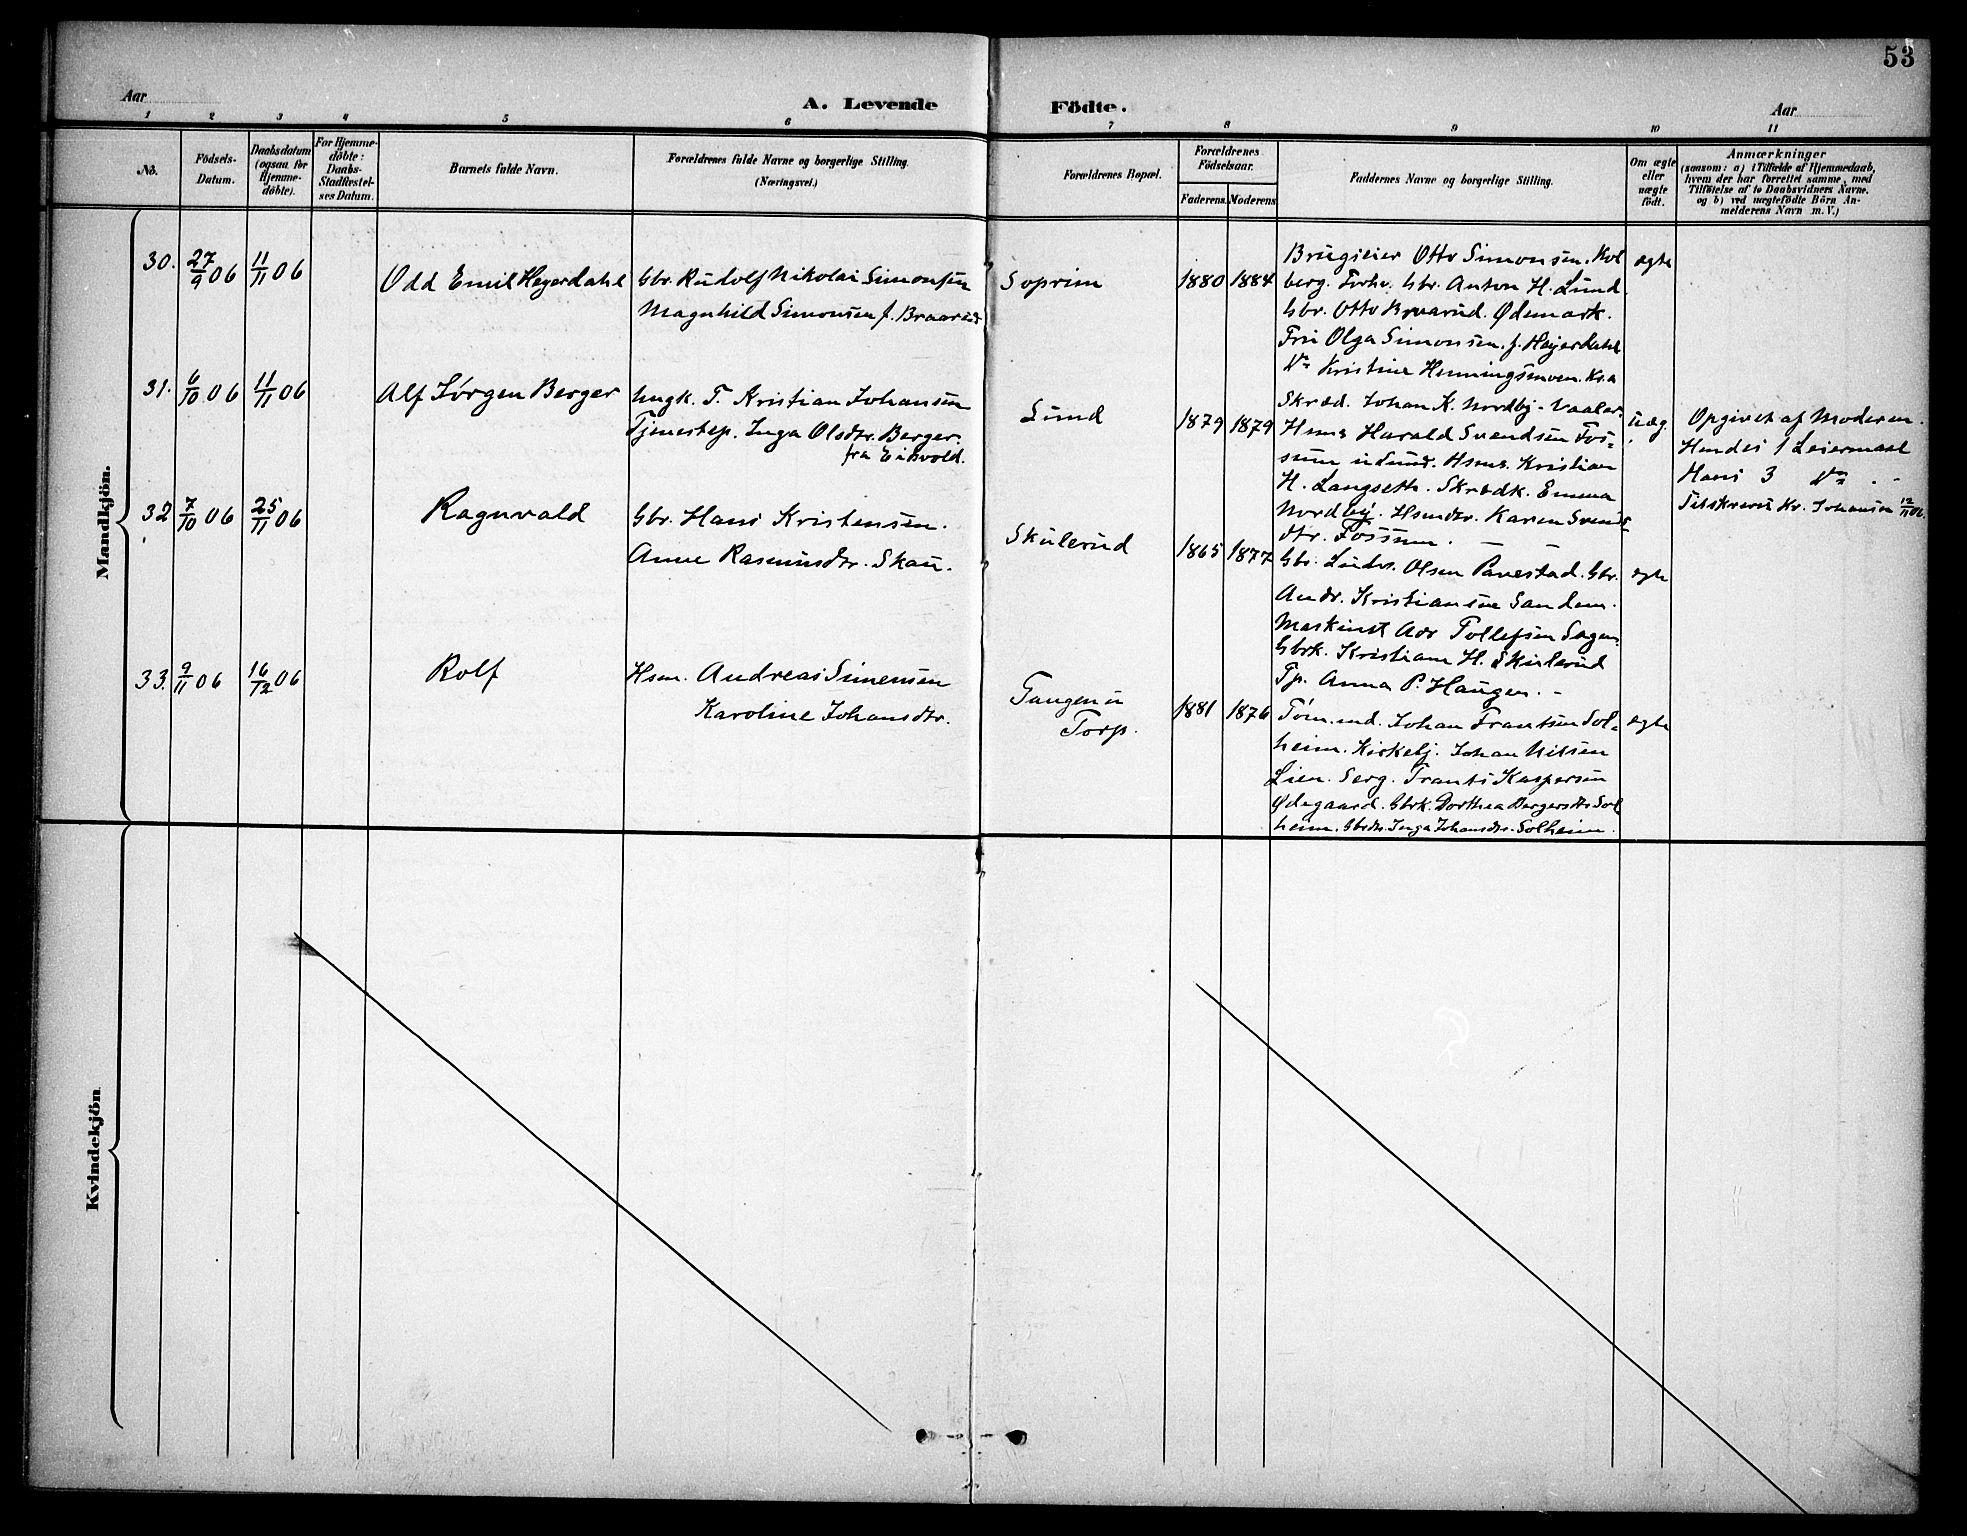 53
Aar
A. Levende Födte.
Aar
1 2 3 4 5 6 7 8 9 10 11
No.
Födsels-Datum.
Daabsdatum (ogsaa for Hjemme-döbte).
For Hjemme-döbte: Daabs-Stadfæstel-ses Datum.
Barnets fulde Navn.
Forældrenes fulde Navne og borgerlige Stilling.
(Næringsvei.)
Forældrenes Bopæl.
Forældrenes Födselsaar.
Faderens. Moderens
Faddernes Navne og borgerlige Stilling.
Om ægte eller uægte födt.
Anmærkninger
(saasom: a) i Tilfælde af Hjemmedaab,
hvem der har forrettet samme, med
Tilföielse af to Daabsvidners Navne.
og b) ved uægtefödte Börn An-
melderens Navn m. V.)
Mandkjön.
30. 27/9 06 11/11 06
Odd Emil Heyerdahl
Gbr. Rudolf Nikolai Simonsen
Magnhild Simonsen f. Braarud
Soprim
1880 1884
Brugseier Otto Simonsen. Kol
berg. Forhv. Gbr. Anton H. Lund.
Gbr. Otto Braarud. Ødemark.
Fru Olga Simonsen. f. Heyerdahl
Kristine Henningsmoen. Kr.a
ægte
31. 6/10 06 11/11 06
Alf Jørgen Berger
Ungk. T. Kristian Johansen
Tjenestep. Inga Olsdtr. Berger.
fra Eidsvold.
Lund
1879 1879
Skræd. Johan K. Nordby. Vaaler.
Hsms Harald Svendsen Fos=
sum u Lund. Hsms. Kristian
H. Langseth. Skrædk. Emma
Nordby. Hsmdtr. Karen Svends
dtr. Fossum.
uæg.
Opgivet af Moderen.
Hendes 1 Leiermaal
Hans 3
Tilskrevet Kr. Johansen 12/11 06.
32 7/10 06 25/11 06
Ragnvald
Gbr. Hans Kristensen.
Anne Rasmusdtr. Skau.
Skulerud
1865 1877
Gbr. Olsen Gbr.
Andr. Kristiansen Sandem.
Maskinst Adr Tollefsen Sagen
Gbrk. Kristiane H. Skulerud
Tp. Anna P. Haugen.
ægte
33. 9/11 06 16/12 06
Rolf
Hsm. Andreas Simensen
Karoline Johansdtr.
Tangen u
Torp.
1881 1876
Tøm.md. Johan Frantsen Sol=
heim. Kirkebj. Johan Nilsen
Lien. Serg. Frants Kaspersen
Ødegaard. Gbrk. Dorthea Bergersdtr Sol
heim. Gbrdtr. Inga Johansdtr. Solheim.
ægte
Kvindekjön